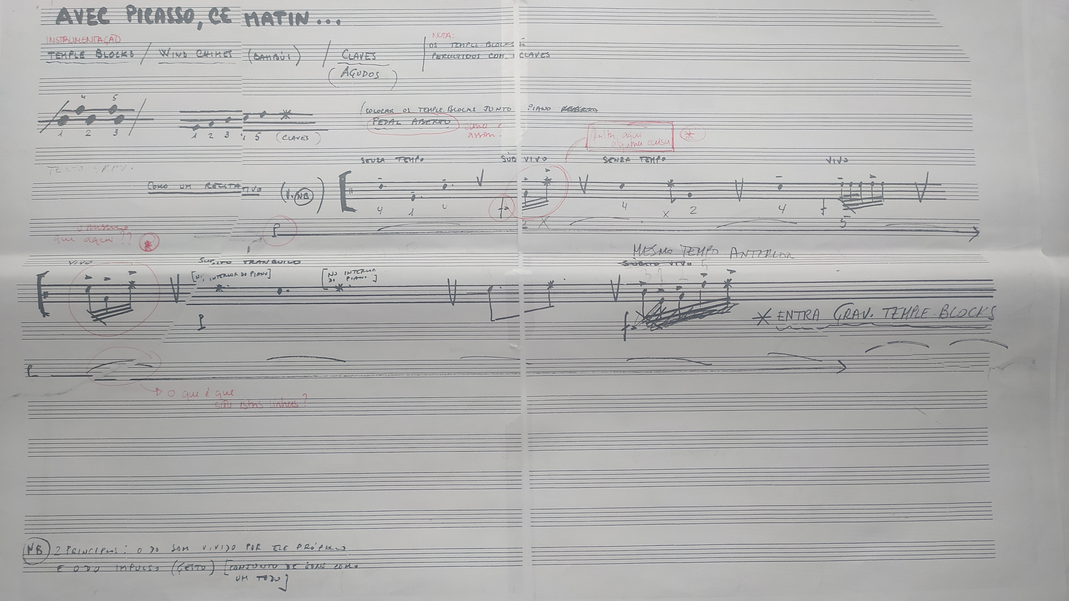 AVEC PICASSO, CE MATIN...
INSTRUMENTAÇÃO
TEMPLE BLOCKS / WIND CHIMES (BAMBÚ) / CLAVES
(AGUDOS)
NOTA:
OS TEMPLE-BLOCKS
PERCUTIDOS COM CLAVES
4 5
1 2 3
1 2 3 4 5 (CLAVES)
(COLOCAR OS TEMPLE BLOCKS JUNTO PIANO
PEDAL ABERTO
como assim?
falta aqui alguma coisa *
SENZA TEMPO SÚB VIVO SENZA TEMPO VIVO
COMO UM RECITATIVO (1. NB)
4 1 4 2 X 4 X 2 4 5
f f
P
que aqui?? *
VIVO SUBITO TRANQUILO
[NO INTERIOR DO PIANO] [NO INTERIOR DO PIANO]
MESMO TEMPO ANTERIOR
SUBITO VIVO
P f
* ENTRA GRAV. TEMPLE-BLOCKS
O que é que
são estas linhas?
NB 2 PRINCIPIOS: O DO SOM VIVIDO POR ELE PRÓPRIO
E O DO IMPULSO (GESTO) [CONJUNTO DE SONS COMO
UM TODO]